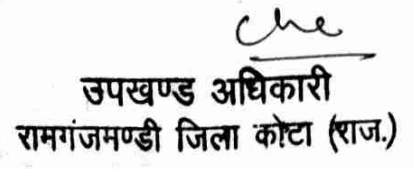 उपखण्ड अधिकारी
रामगंजमण्डी जिला कोटा (राज.)